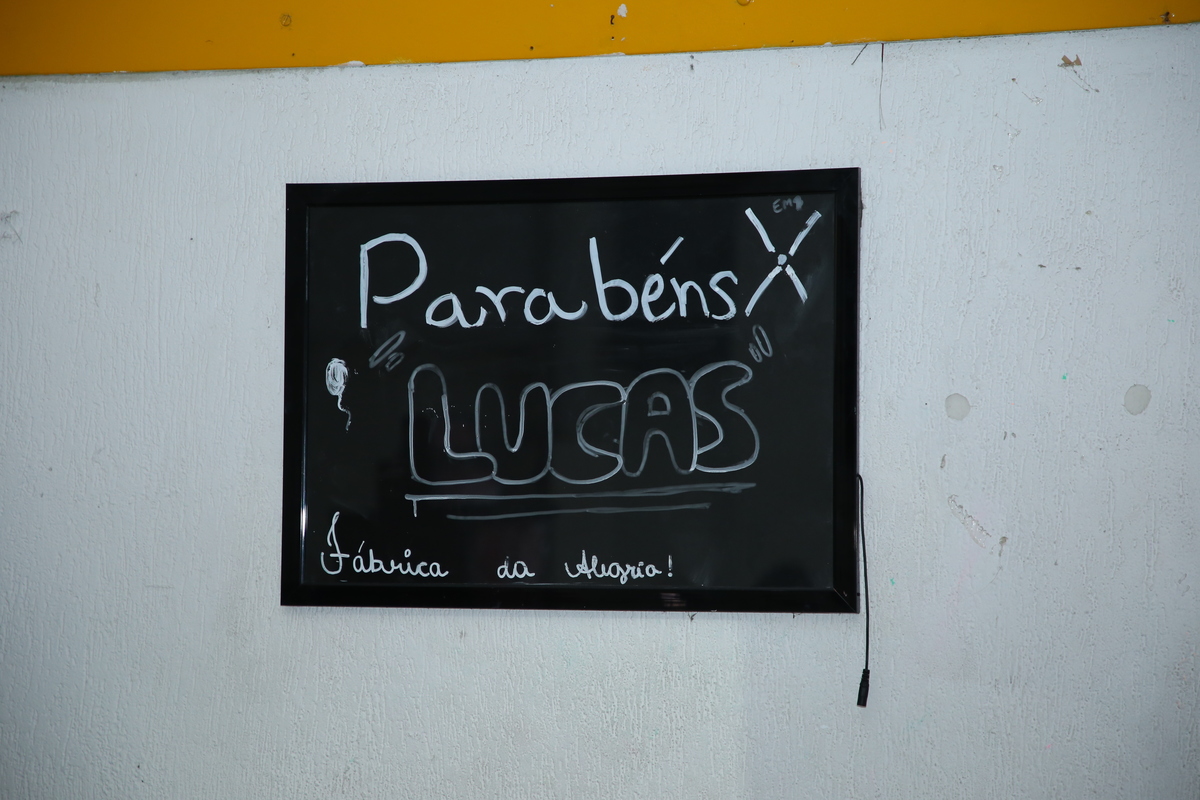 Parabéns
LUCAS
Fábrica da Alegria!